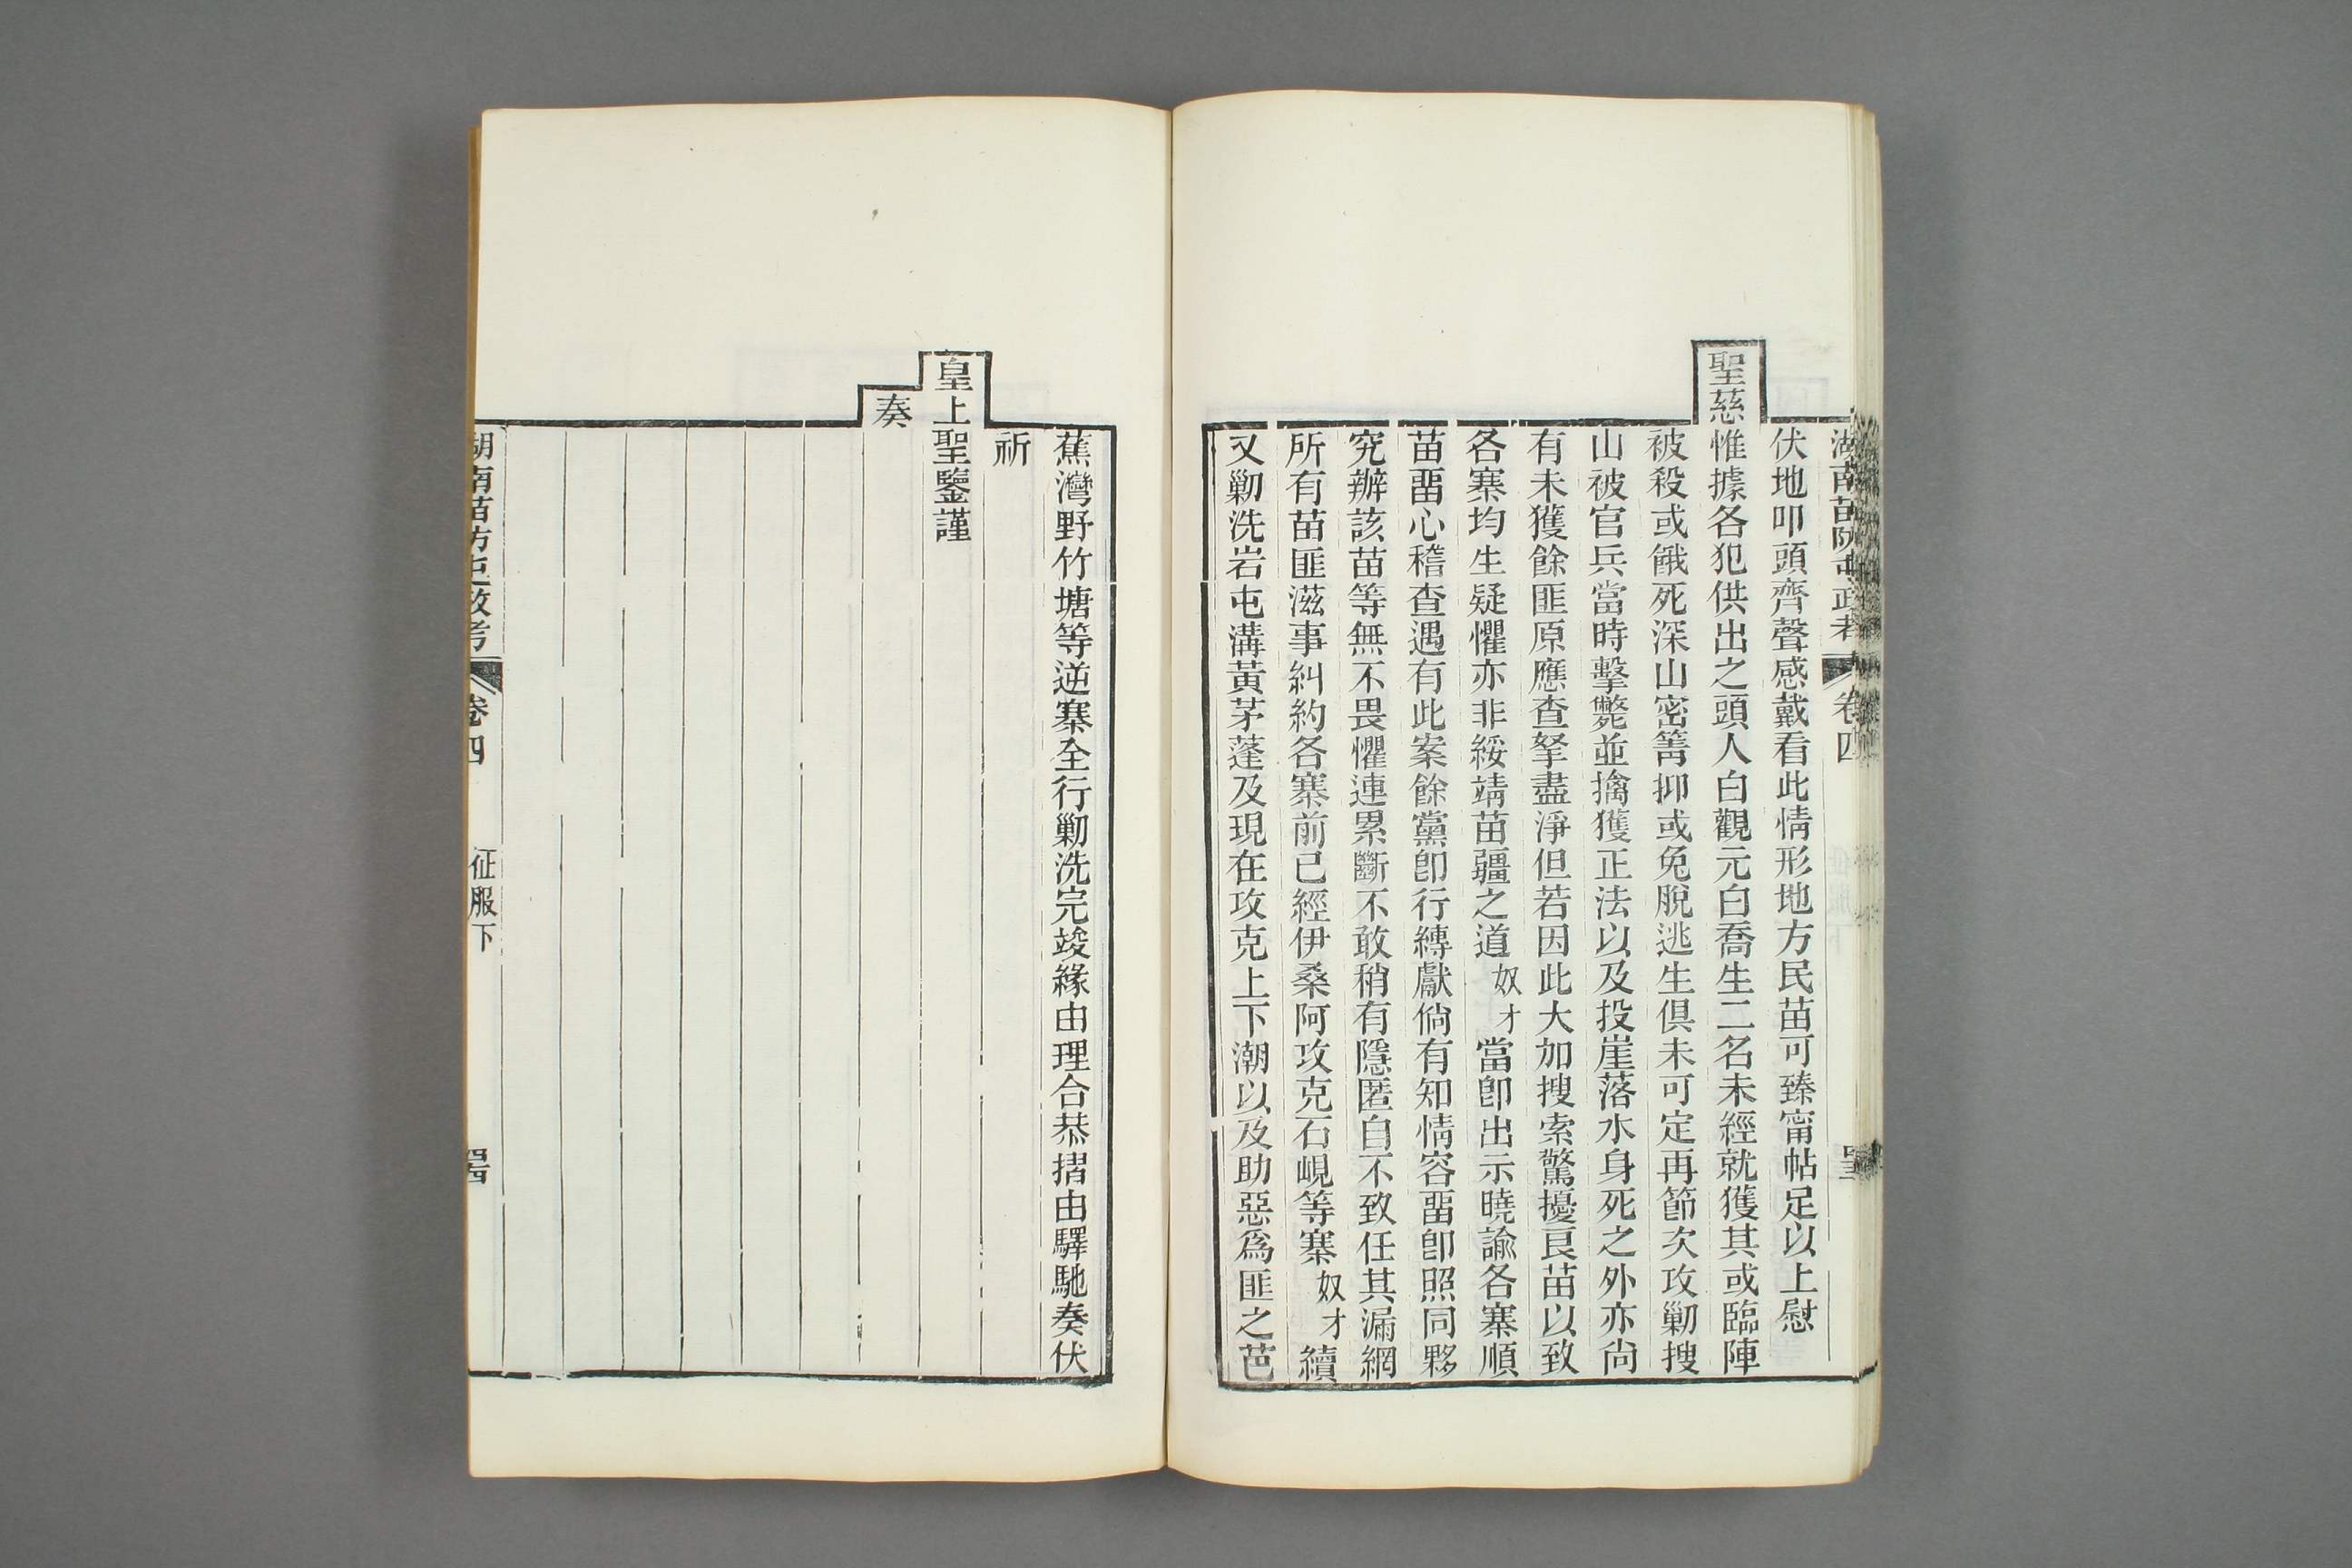 湖南苗防屯政考 卷四
伏地叩頭齊聲感戴看此情形地方民苗可臻甯帖足以上慰
聖慈惟據各犯供出之頭人白觀元白喬生二名未經就獲其或臨陣
被殺或餓死深山密箐抑或兔脫逃生俱未可定再節次攻勦搜
山被官兵當時擊斃並擒獲正法以及投崖落水身死之外亦尙
有未獲餘匪原應查拏盡淨但若因此大加搜索驚擾良苗以致
各寨均生疑懼亦非綏靖苗疆之道奴才當卽出示曉諭各寨順
苗畱心稽查遇有此案餘黨卽行縛獻倘有知情容畱卽照同夥
究辦該苗等無不畏懼連累斷不敢稍有隱匿自不致任其漏網
所有苗匪滋事糾約各寨前已經伊桑阿攻克石峴等寨奴才續
又勦洗岩屯溝黃茅蓬及現在攻克上下潮以及助惡爲匪之芭
蕉灣野竹塘等逆寨全行勦洗完竣緣由理合恭摺由驛馳奏伏
祈
皇上聖鑒謹
奏
湖南苗防屯政考 卷四 征服下